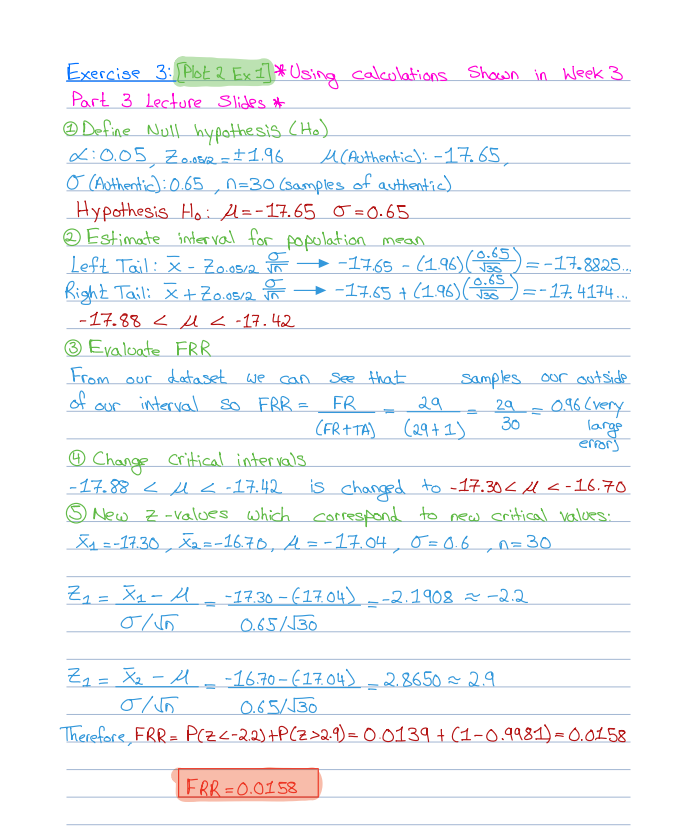 Exercise 3: [Plot 2 Ex 1] * Using calculations Shown in Week 3
Part 3 Lecture Slides *
① Define Null hypothesis (H₀)
α: 0.05, Z₀.₀₅/₂ = ±1.96 μ (Authentic): -17.65,
σ (Authentic): 0.65, n=30 (samples of authentic)
Hypothesis H₀: μ = -17.65 σ = 0.65
② Estimate interval for population mean
Left Tail: x̄ - Z₀.₀₅/₂ σ/√n → -17.65 - (1.96)(0.65/√30) = -17.8825...
Right Tail: x̄ + Z₀.₀₅/₂ σ/√n → -17.65 + (1.96)(0.65/√30) = -17.4174...
-17.88 < μ < -17.42
③ Evaluate FRR
From our dataset we can see that samples our outside
of our interval so FRR = FR/(FR+TA) = 29/(29+1) = 29/30 = 0.96 (very large error)
④ Change critical intervals
-17.88 < μ < -17.42 is changed to -17.30 < μ < -16.70
⑤ New Z-values which correspond to new critical values:
x̄₁ = -17.30, x̄₂ = -16.70, μ = -17.04, σ = 0.6, n = 30
Z₁ = x̄₁ - μ / σ/√n = -17.30 - (-17.04) / 0.65/√30 = -2.1908 ≈ -2.2
Z₁ = x̄₂ - μ / σ/√n = -16.70 - (-17.04) / 0.65/√30 = 2.8650 ≈ 2.9
Therefore, FRR = P(Z<-2.2) + P(Z>2.9) = 0.0139 + (1-0.9981) = 0.0158
FRR = 0.0158